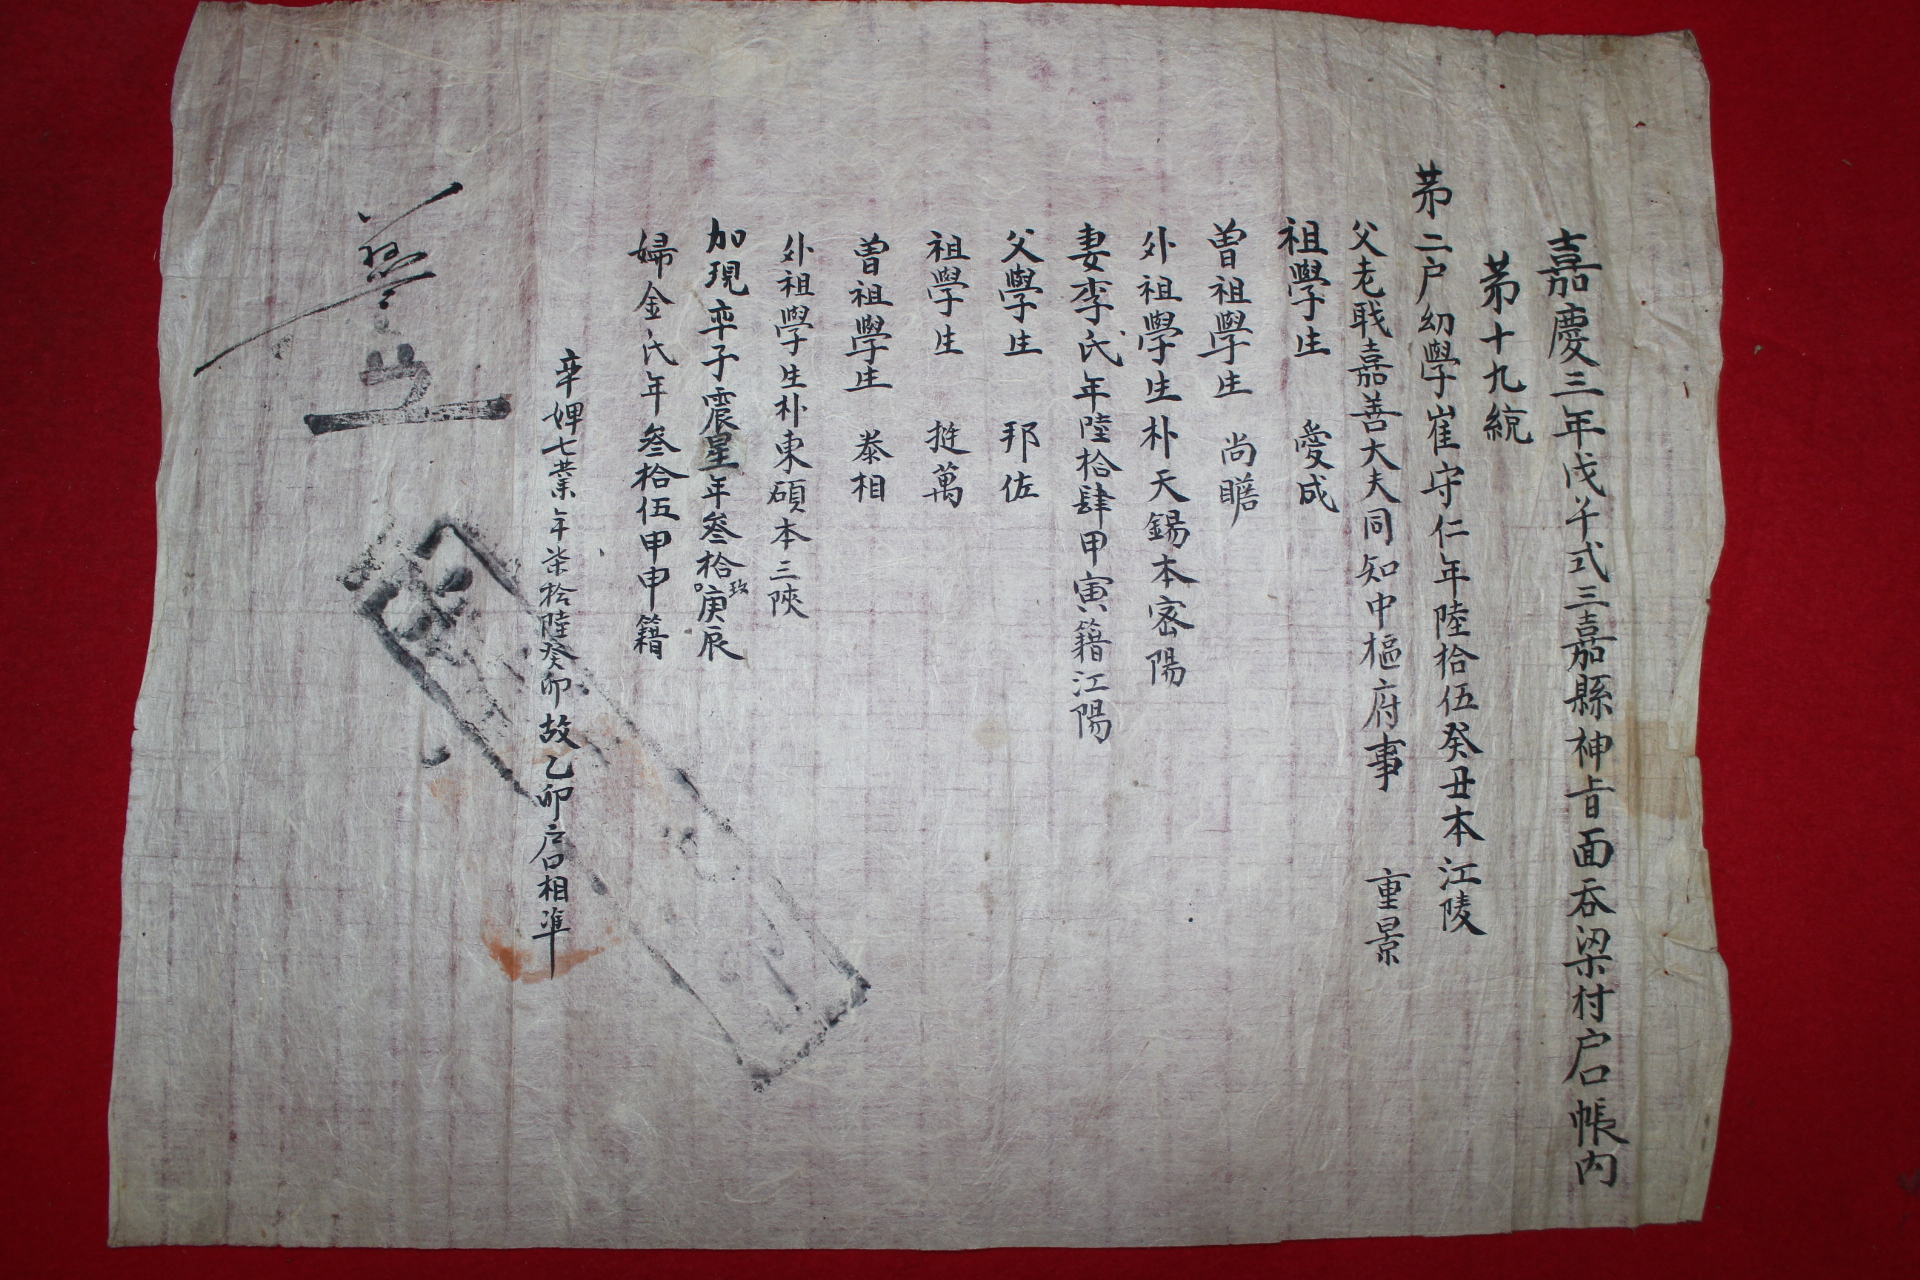 嘉慶三年戊午式三嘉縣神旨面吞梁村戶口帳內
第十九統
第二戶幼學崔守仁年陸拾伍癸丑本江陵
父老職嘉善大夫同知中樞府事 重景
祖學生 愛成
曾祖學生 尚瞻
外祖學生朴天錫本密陽
妻李氏年陸拾肆甲寅籍江陽
父學生 邦佐
祖學生 挺萬
曾祖學生 泰相
外祖學生朴東碩本三陜
加現率子震星年叁拾玖庚辰
婦金氏年叁拾伍甲申籍
率婢七業年柒拾陸癸卯故乙卯戶口相準